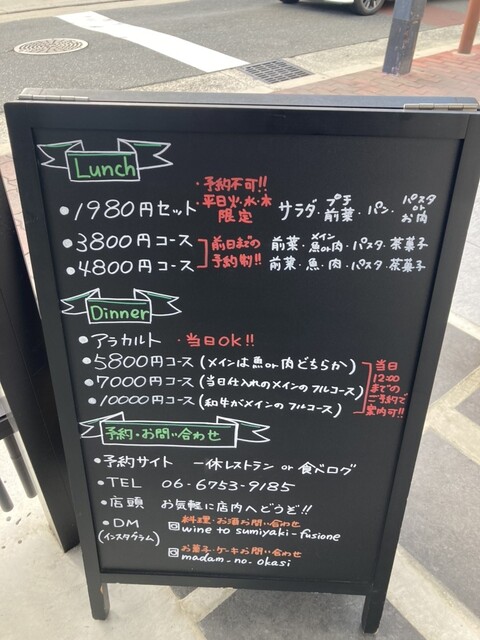 Lunch
・予約不可!!
平日火・水・木
限定
・1980円セット サラダ・プチ前菜・パン・パスタorお肉
・3800円コース 前日までの予約制!! 前菜・メイン魚or肉・パスタ・茶菓子
・4800円コース 前菜・魚・肉・パスタ・茶菓子
Dinner
・アラカルト ・当日ok!!
・5800円コース(メインは魚or肉どちらか)
・7000円コース(当日仕入れのメインのフルコース)
・10000円コース(和牛がメインのフルコース)
当日
12:00
までの
ご予約で
案内可!!
予約・お問い合わせ
・予約サイト 一休レストラン or 食べログ
・TEL 06-6753-9185
・店頭 お気軽に店内へどうぞ!!
・DM
(インスタグラム)
料理・お酒お問い合わせ
wine to sumiyaki-fusione
お菓子・ケーキお問い合わせ
madam-no-okasi